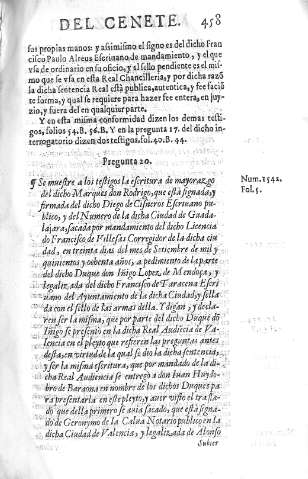 DEL CENETE. 458
sus propias manos y assimismo el signo es del dicho Fran
cisco Paulo Alreus Escriuano de mandamiento, y el que
vsa de ordinario en su oficio, y al sello pendiente es el mis
mo que se vsa en esta Real Chancilleria, y por dicha razõ
la dicha sentencia Real està publica, autentica, y fee facië
te forma, y qual se requiere para hazer fee entera, en juy-
zio, y fuera del en qualquier parte.
Y en esta misma conformidad dizen los demas testi-
gos, folios 54.B. 56.B. Y en la pregunta 17. del dicho in-
terrogatorio dizen dos testigos. fol. 40. B. 44.
Pregunta 20.
¶ Se muestre a los testigos la escritura de mayorazgo
del dicho Marques don Rodrigo, que està signada, y
firmada del dicho Diego de Cisneros Escriuano pu
blico, y del Numero de la dicha Ciudad de Guada-
lajara, sacada por mandamiento del dicho Licencia
do Francisco de Villesas Corregidor de la dicha ciu
dad, en treinta dias del mes de Setiembre de mil y
quinientos y ochenta años, a pedimiento de la parte
del dicho Duque don Iñigo Lopez de Mendoça, y
legalizada del dicho Francisco de Taracena Escri
uano del Ayuntamiento de la dicha Ciudad, y sella
da con el sello de las armas della. Y digan, y decla-
ren ser la misma, que por parte del dicho Duque dõ
Iñigo se presentò en la dicha Real Audiëcia de Va-
lencia en el pleyto que refieren las preguntas antes
desta, en virtud de la qual se dio la dicha sentencia,
y ser la misma escritura, que por mandado de la di-
cha Real Audiencia se entregò a don Iuan Huydo-
bro de Baraona en nombre de los dichos Duques pa
ra presentarla en este pleyto, y auer visto el trasla-
do que della primero se auia sacado, que està signa-
do de Geronymo de la Calua Notario publico en la
dicha Ciudad de Valencia, y legalizada de Alonso
Subier
Num. 1542.
Fol. 5.